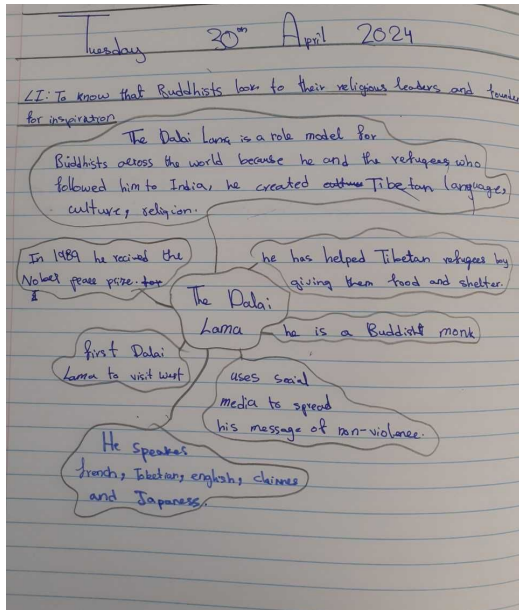 Tuesday 30th April 2024
LI: To know that Buddhists look to their religious leaders and founder
for inspiration
The Dalai Lama is a role model for
Buddhists across the world because he and the refugees who
followed him to India, he created Tibetan language,
culture, religion.
In 1989 he recived the
Nobel peace prize.
he has helped Tibetan refugees by
giving them food and shelter.
The Dalai
Lama
he is a Buddist monk
first Dalai
Lama to visit west
uses social
media to spread
his message of non-violence.
He speakes
french, Tobetian, english, chinnes
and Japaness.